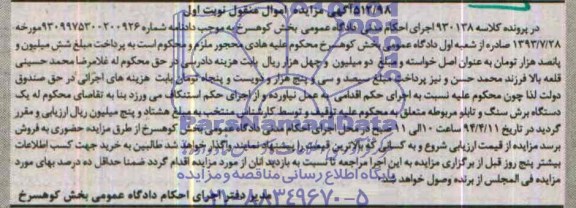 ۵۱۲/۹۸ آگهی مزایده اموال منقول نوبت اول
در پرونده کلاسه ۹۳۰۱۳۸ اجرای احکام مدنی دادگاه عمومی بخش کوهسرخ به موجب دادنامه شماره ۲۰۰۹۲۶-۹۳۰۹۹۷۵۳۰۰ مورخه
۱۳۹۳/۷/۲۸ صادره از شعبه اول دادگاه عمومی بخش کوهسرخ محکوم علیه هادی محجور ملزم و محکوم است به پرداخت مبلغ شش میلیون و
پانصد هزار تومان به عنوان اصل خواسته و مبلغ دو میلیون و چهل هزار ریال بابت هزینه دادرسی در حق محکوم له غلامرضا محمد حسینی
قلعه بالا فرزند محمد حسن و نیز پرداخت مبلغ سیصد و سی و پنج هزار و دویست و پنجاه تومان بابت هزینه های اجرائی در حق صندوق
دولت لذا چون محکوم علیه نسبت به اجرای حکم اقدامی به عمل نیاورده و از اجرای حکم استنکاف می ورزد بنا به تقاضای محکوم له یک
دستگاه برش سنگ و تابلو مربوطه متعلق به محکوم علیه توقیف و توسط کارشناس منتخب به مبلغ هشتاد و پنج میلیون ریال ارزیابی و مقرر
گردید در تاریخ ۹۴/۴/۱۱ ساعت ۱۰ الی ۱۱ صبح در محل اجرای احکام مدنی دادگاه عمومی بخش کوهسرخ از طریق مزایده حضوری به فروش
برسد مزایده از قیمت ارزیابی شروع و به کسانی که بالاترین قیمت را پیشنهاد نمایند واگذار خواهد شد طالبین به خرید جهت کسب اطلاعات
بیشتر پنج روز قبل از برگزاری مزایده به این اجرا مراجعه تا نسبت به بازدید آنان از مورد مزایده اقدام گردد ضمنا حداقل ده درصد بهای مورد
مزایده فی المجلس از برنده وصول خواهد شد
مدیر دفتر اجرای احکام دادگاه عمومی بخش کوهسرخ
ParsNamadData
پایگاه اطلاع رسانی مناقصه و مزایده